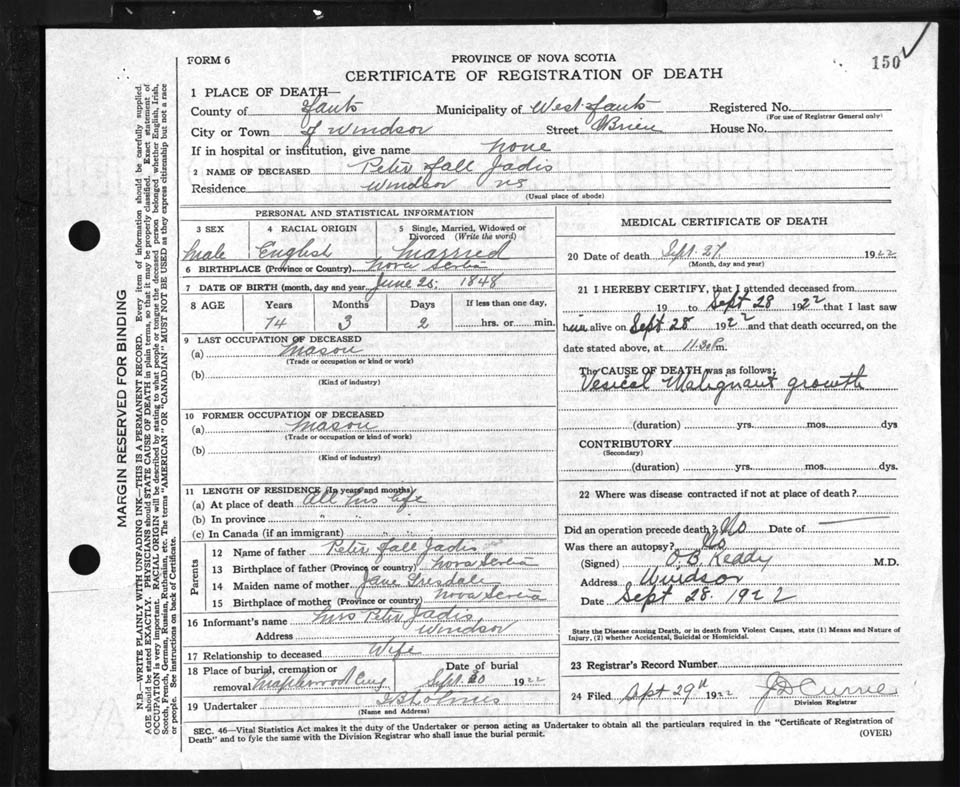 FORM 6
PROVINCE OF NOVA SCOTIA
150
CERTIFICATE OF REGISTRATION OF DEATH
1 PLACE OF DEATH—
County of Hants Municipality of West Hants Registered No.
(For use of Registrar General only)
City or Town of Windsor Street OBrien House No.
If in hospital or institution, give name none
2 NAME OF DECEASED Peter Hall Jadis
Residence Windsor NS
(Usual place of abode)
PERSONAL AND STATISTICAL INFORMATION
3 SEX 4 RACIAL ORIGIN 5 Single, Married, Widowed or Divorced (Write the word)
Male English Married
6 BIRTHPLACE (Province or Country) Nova Scotia
7 DATE OF BIRTH (month, day and year) June 25, 1848
8 AGE Years Months Days If less than one day,
74 3 2 hrs. or min.
9 LAST OCCUPATION OF DECEASED
(a) Mason
(Trade or occupation or kind of work)
(b)
(Kind of industry)
10 FORMER OCCUPATION OF DECEASED
(a) Mason
(Trade or occupation or kind of work)
(b)
(Kind of industry)
11 LENGTH OF RESIDENCE (In years and months)
(a) At place of death All his life
(b) In province " " "
(c) In Canada (if an immigrant) " "
Parents
12 Name of father Peter Hall Jadis
13 Birthplace of father (Province or country) Nova Scotia
14 Maiden name of mother Jane
15 Birthplace of mother (Province or country) Nova Scotia
16 Informant's name Mrs Peter Jadis
Address Windsor
17 Relationship to deceased Wife
18 Place of burial, cremation or removal Maplewood Cmy
Date of burial Sept. 30 1922
19 Undertaker
(Name and Address)
MEDICAL CERTIFICATE OF DEATH
20 Date of death Sept. 27 1922
(Month, day and year)
21 I HEREBY CERTIFY, that I attended deceased from
19 to Sept 28 1922 that I last saw
him alive on Sept 28 1922 and that death occurred, on the
date stated above, at 11.30 P.m.
The CAUSE OF DEATH was as follows:
Vesical Malignant growth
(duration) yrs. mos. dys
CONTRIBUTORY
(Secondary)
(duration) yrs. mos. dys.
22 Where was disease contracted if not at place of death?
Did an operation precede death? No Date of
Was there an autopsy? No
(Signed) O.B. Keddy M.D.
Address Windsor
Date Sept 28. 1922
State the Disease causing Death, or in death from Violent Causes, state (1) Means and Nature of
Injury, (2) whether Accidental, Suicidal or Homicidal.
23 Registrar's Record Number
24 Filed Sept 29th 1922 J D Currie
Division Registrar
SEC. 46—Vital Statistics Act makes it the duty of the Undertaker or person acting as Undertaker to obtain all the particulars required in the "Certificate of Registration of
Death" and to fyle the same with the Division Registrar who shall issue the burial permit.
(OVER)
MARGIN RESERVED FOR BINDING
N.B.—WRITE PLAINLY WITH UNFADING INK—THIS IS A PERMANENT RECORD. Every item of information should be carefully supplied.
AGE should be stated EXACTLY. PHYSICIANS should STATE CAUSE OF DEATH in plain terms, so that it may be properly classified. Exact statement of
OCCUPATION is very important. RACIAL ORIGIN will be described by stating to what people or tongue the deceased person belonged whether English, Irish,
Scotch, French, German, Russian, Ruthenian, etc. The terms "AMERICAN" or "CANADIAN" MUST NOT BE USED as they express citizenship but not a race
or people. See instructions on back of Certificate.